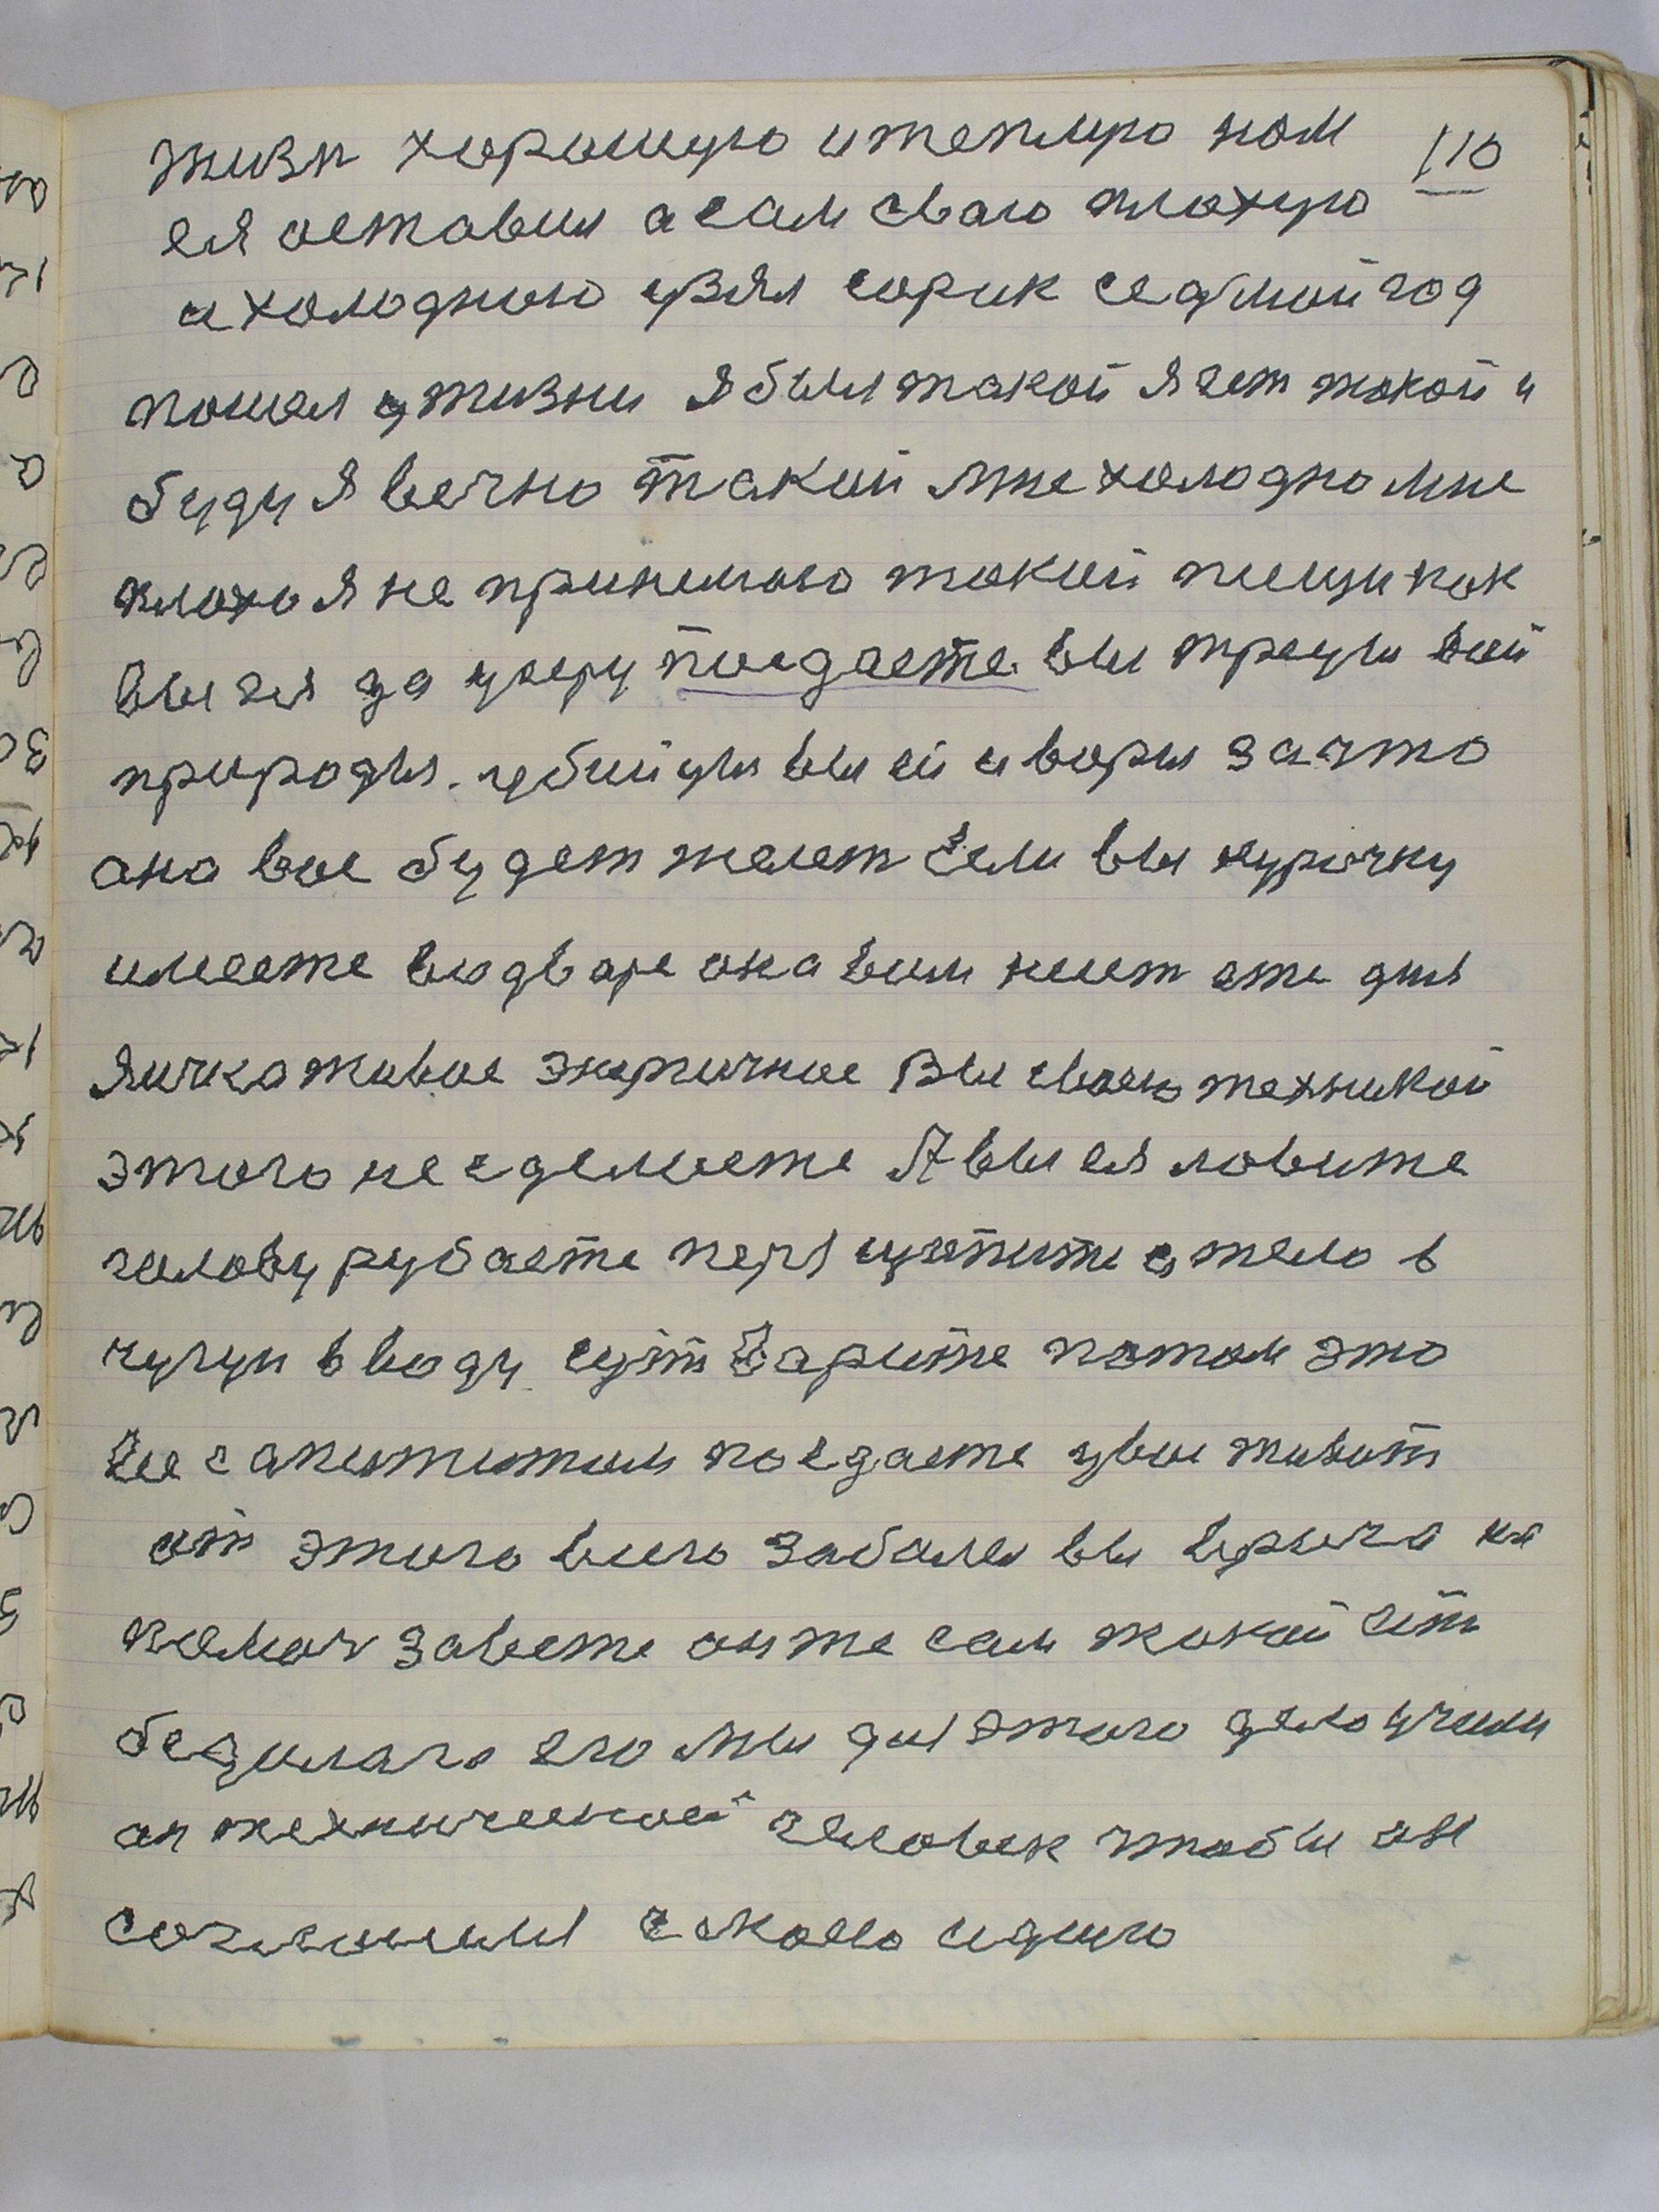 жизн хорошую и теплую нам 110
ея оставил а сам сваю плохую
и холодною узял сорик седмой год
пошел у жизни я был такой я ест такой и
буду я вечно такой мне холодно мне
плохо я не принемаю такой пищи как
вы ея да уверу поедаете вы трупы вой
природы. убийцы вы ей и воры за что
ана вас будет желет если вы курочку
имеете во дваре она вам несет эти дня
яичка живое энергичное Вы своею техникой
этого не сделаете А вы ея ловите
голову рубаете перя щепите а тело в
чугун в воду суп варите потом это
все с апетитом поедаете у вас живот
от этого всего заболел вы врача на
помоч завете он же сам такой ест
бедилага его мы для этого дело учили
ан технический человек чтобы он
согласился с маею идиею